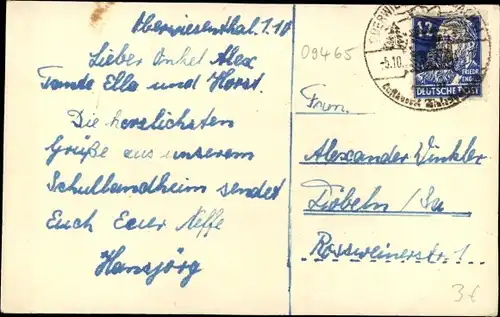 Oberwiesenthal, 1.10
Lieber Onkel Alex
Tante Ella und Horst.
Die herzlichsten
Grüße aus unserem
Schullandheim sendet
Euch Euer Neffe
Hansjörg
09465
-5.10.
12
FRIEDR.
DEUTSCHE POST
Alexander Winkler
Döbeln / Sa
Rossweinerstr. 1
3€